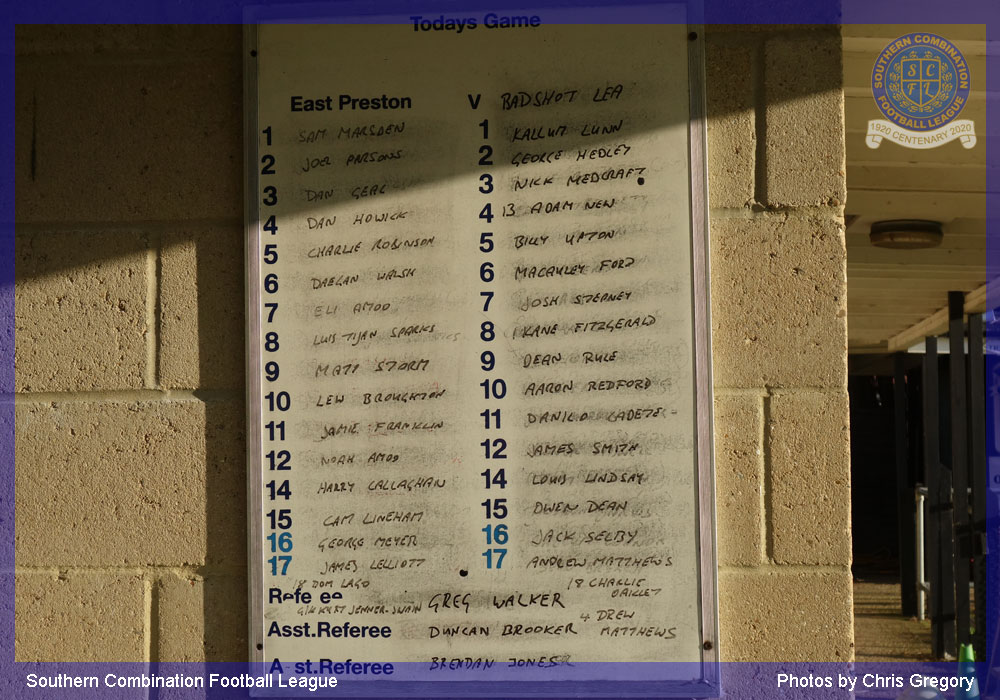 Todays Game
East Preston V BADSHOT LEA
1 SAM MARSDEN 1 KALLUM LUNN
2 JOEL PARSONS 2 GEORGE HEDLEY
3 DAN GEAL 3 NICK MEDCRAFT
4 DAN HOWICK 4 13 ADAM NEW
5 CHARLIE ROBINSON 5 BILLY UPTON
6 DAEGAN WALSH 6 MACAULEY FORD
7 ELI AMOO 7 JOSH STEPNEY
8 LUIS TIJAN SPARKS 8 KANE FITZGERALD
9 MATT STORM 9 DEAN RULE
10 LEW BROUGHTON 10 AARON REDFORD
11 JAMIE FRANKLIN 11 DANILO CADETE
12 NOAH AMOO 12 JAMES SMITH
14 HARRY CALLAGHAN 14 LOUIS LINDSAY
15 CAM LINEHAM 15 OWEN DEAN
16 GEORGE MEYER 16 JACK SELBY
17 JAMES LELLIOTT 17 ANDREW MATTHEWS
18 DOM LAGO 18 CHARLIE OAKLEY
Refe ee GREG WALKER
KURT JENNER-SWAIN
4 DREW MATTHEWS
Asst.Referee DUNCAN BROOKER
A st.Referee BRENDAN JONES
SOUTHERN COMBINATION FOOTBALL LEAGUE
S C F L
1920 CENTENARY 2020
Southern Combination Football League
Photos by Chris Gregory